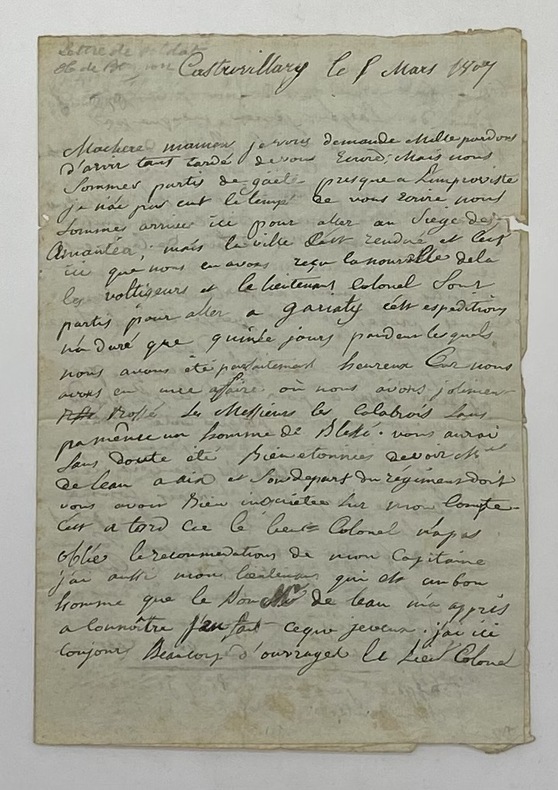 Lettre de soldat
Castrovillary le 8 Mars 1807
Machere maman je vous demande Mille pardons
d'avoir tant tardé de vous Ecrire, Mais nous
Sommes partis de gaëte presque a L'improviste
je n'ai pas eut le temps de vous écrire nous
Sommes arrivés ici pour aller au Siege de
Amantéa, mais la ville s'est rendue et c'est
ici que nous en avons reçu la nouvelle de la
les voltigeurs et le lieutenant Colonel Sont
partis pour aller a gariaty cett expeditions
n'a duré que quinze jours pendent les quels
nous avons été parfaitement heureux Car nous
avons eu une affaire où nous avons joliment
Rossé les Messieurs les Calabrois Sans
pa même un homme de Blessé. vous aurai
Sans doute été Bien etonnée de voir Mr
de leau a aix et Son depart du régiment doit
vous avoir Bien inquietée Sur mon Compte
c'est a tord car le lieut Colonel n'a pas
oblié le recommendations de mon Capitaine
j'ai aussi mon lieutenant qui est un bon
homme que le Bon Mr de leau m'a appris
a Connoître j'en fait ceque je veux. j'ai ici
toujours Beaucoup d'ouvrages le Lieut Colonel